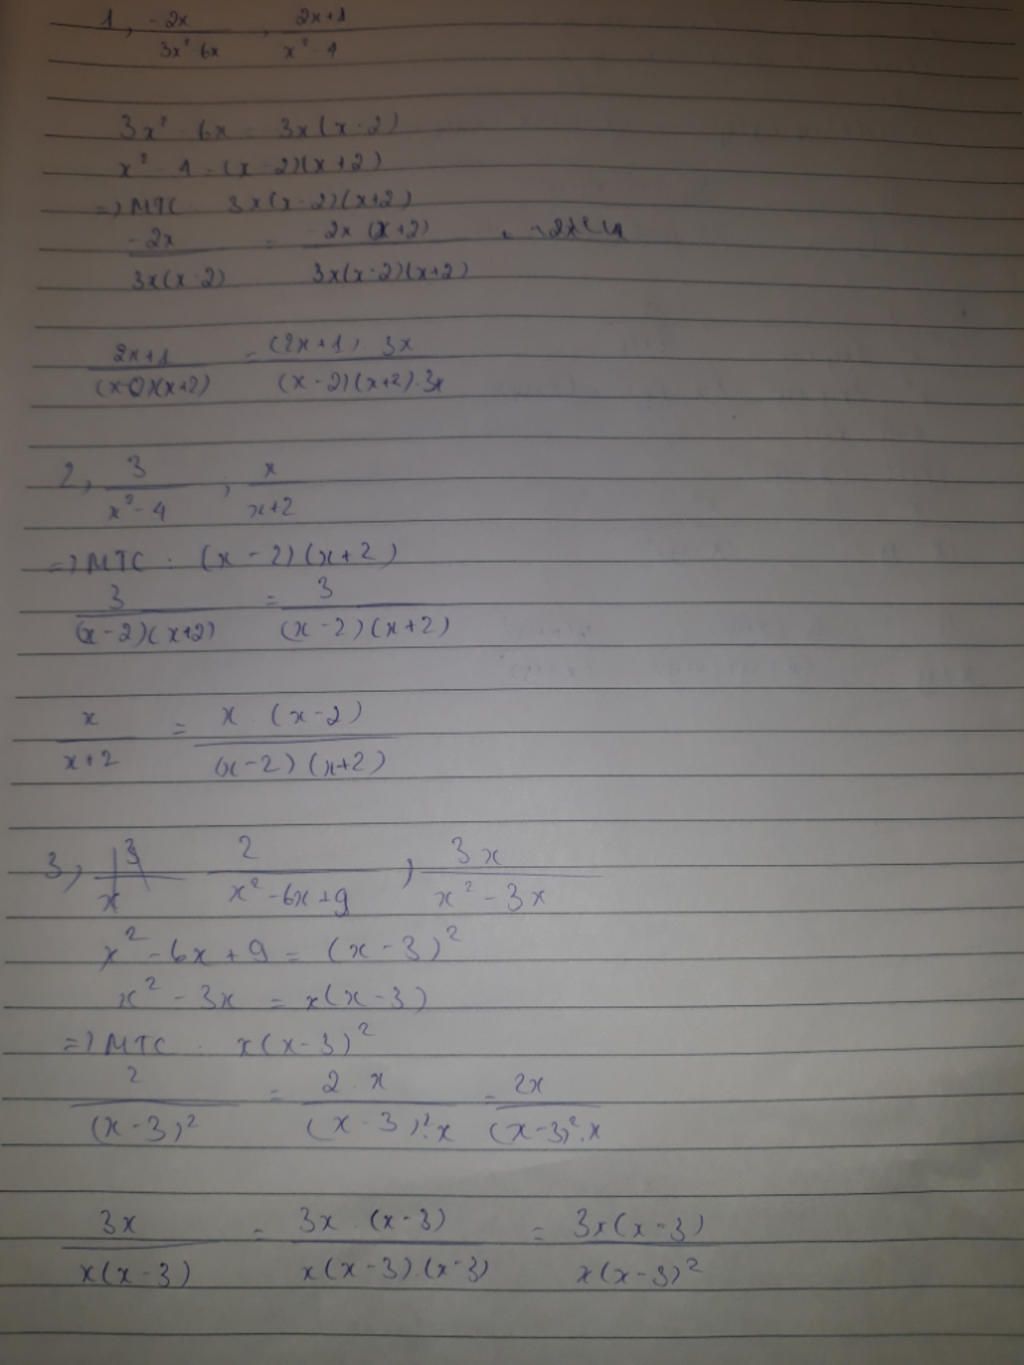 1, -2x/(3x² - 6x) , (2x+1)/(x² - 4)
3x² - 6x = 3x(x-2)
x² - 4 = (x-2)(x+2)
=) MTC : 3x(x-2)(x+2)
-2x/(3x(x-2)) = -2x.(x+2)/(3x(x-2)(x+2))
(2x+1)/((x-2)(x+2)) = (2x+1). 3x/((x-2)(x+2).3x)
2, 3/(x²-4) , x/(x+2)
=) MTC : (x-2)(x+2)
3/((x-2)(x+2)) = 3/((x-2)(x+2))
x/(x+2) = x.(x-2)/((x-2)(x+2))
3, 2/(x²-6x+9) , 3x/(x²-3x)
x²-6x+9 = (x-3)²
x²-3x = x(x-3)
=) MTC : x(x-3)²
2/(x-3)² = 2.x/((x-3)².x) = 2x/((x-3)².x)
3x/(x(x-3)) = 3x.(x-3)/(x(x-3).(x-3)) = 3x(x-3)/(x(x-3)²)